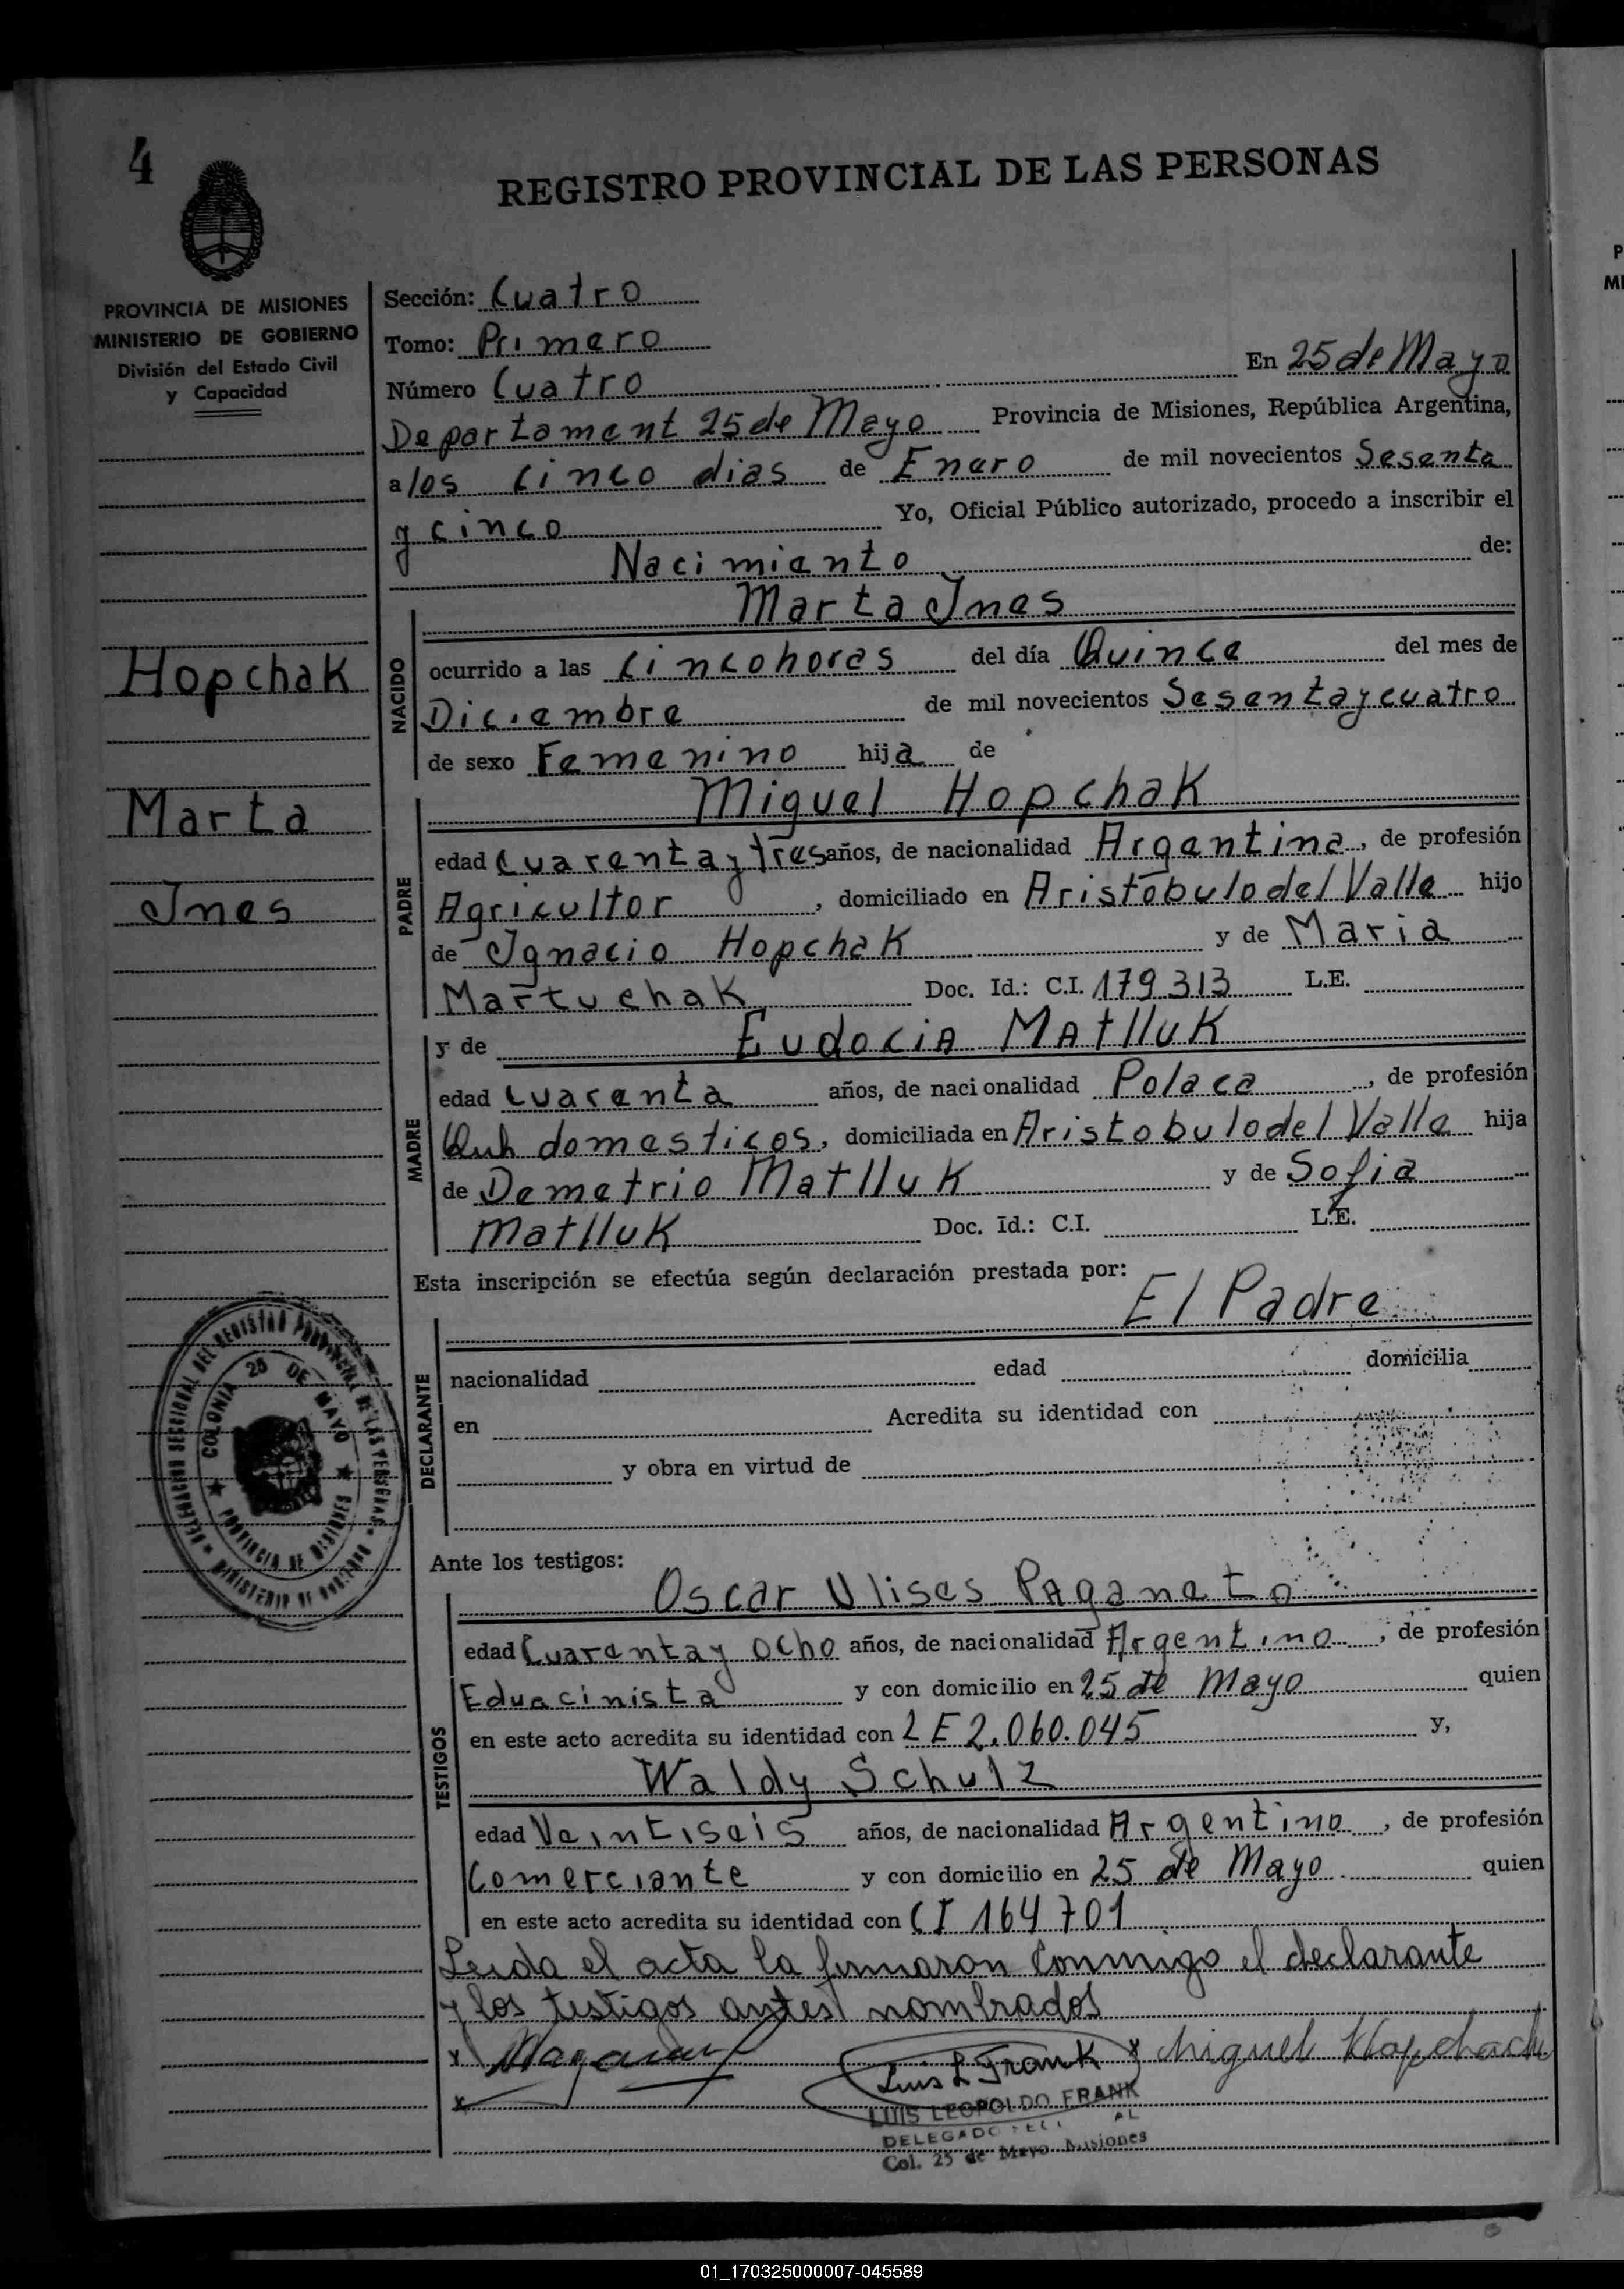 4
REGISTRO PROVINCIAL DE LAS PERSONAS
PROVINCIA DE MISIONES
MINISTERIO DE GOBIERNO
División del Estado Civil
y Capacidad
Hopchak
Marta
Ines
Sección: Cuatro
Tomo: Primero
Número Cuatro En 25 de Mayo
Departament 25 de Mayo Provincia de Misiones, República Argentina,
a los cinco dias de Enero de mil novecientos Sesenta
y cinco Yo, Oficial Público autorizado, procedo a inscribir el
Nacimiento de:
Marta Ines
NACIDO
ocurrido a las Cinco horas del día Quince del mes de
Diciembre de mil novecientos Sesenta y cuatro
de sexo Femenino hija de
Miguel Hopchak
PADRE
edad Cuarenta y tres años, de nacionalidad Argentina, de profesión
Agricultor, domiciliado en Aristobulo del Valle hijo
de Ignacio Hopchak y de Maria
Martuchak Doc. Id.: C.I. 179313 L.E.
y de Eudocia Matlluk
MADRE
edad cuarenta años, de nacionalidad Polaca, de profesión
Quh domesticos, domiciliada en Aristobulo del Valle hija
de Demetrio Matlluk y de Sofia
Matlluk Doc. Id.: C.I. L.E.
Esta inscripción se efectúa según declaración prestada por:
El Padre
DECLARANTE
nacionalidad edad domicilia
en Acredita su identidad con
y obra en virtud de
DELEGACION SECCIONAL DEL REGISTRO PROVINCIAL DE LAS PERSONAS
MINISTERIO DE GOBIERNO
COLONIA 25 DE MAYO
PROVINCIA DE MISIONES
Ante los testigos:
Oscar Ulises Paganeto
TESTIGOS
edad Cuarenta y ocho años, de nacionalidad Argentino, de profesión
Eduacinista y con domicilio en 25 de Mayo quien
en este acto acredita su identidad con LE 2.060.045 y,
Waldy Schulz
edad Veintiseis años, de nacionalidad Argentino, de profesión
Comerciante y con domicilio en 25 de Mayo quien
en este acto acredita su identidad con CI 164701
Leida el acta la firmaron conmigo el declarante
y los testigos antes nombrados
Luis L Frank x Miguel Hopchach
LUIS LEOPOLDO FRANK
DELEGADO
Col. 25 de Mayo Misiones
01_170325000007-045589